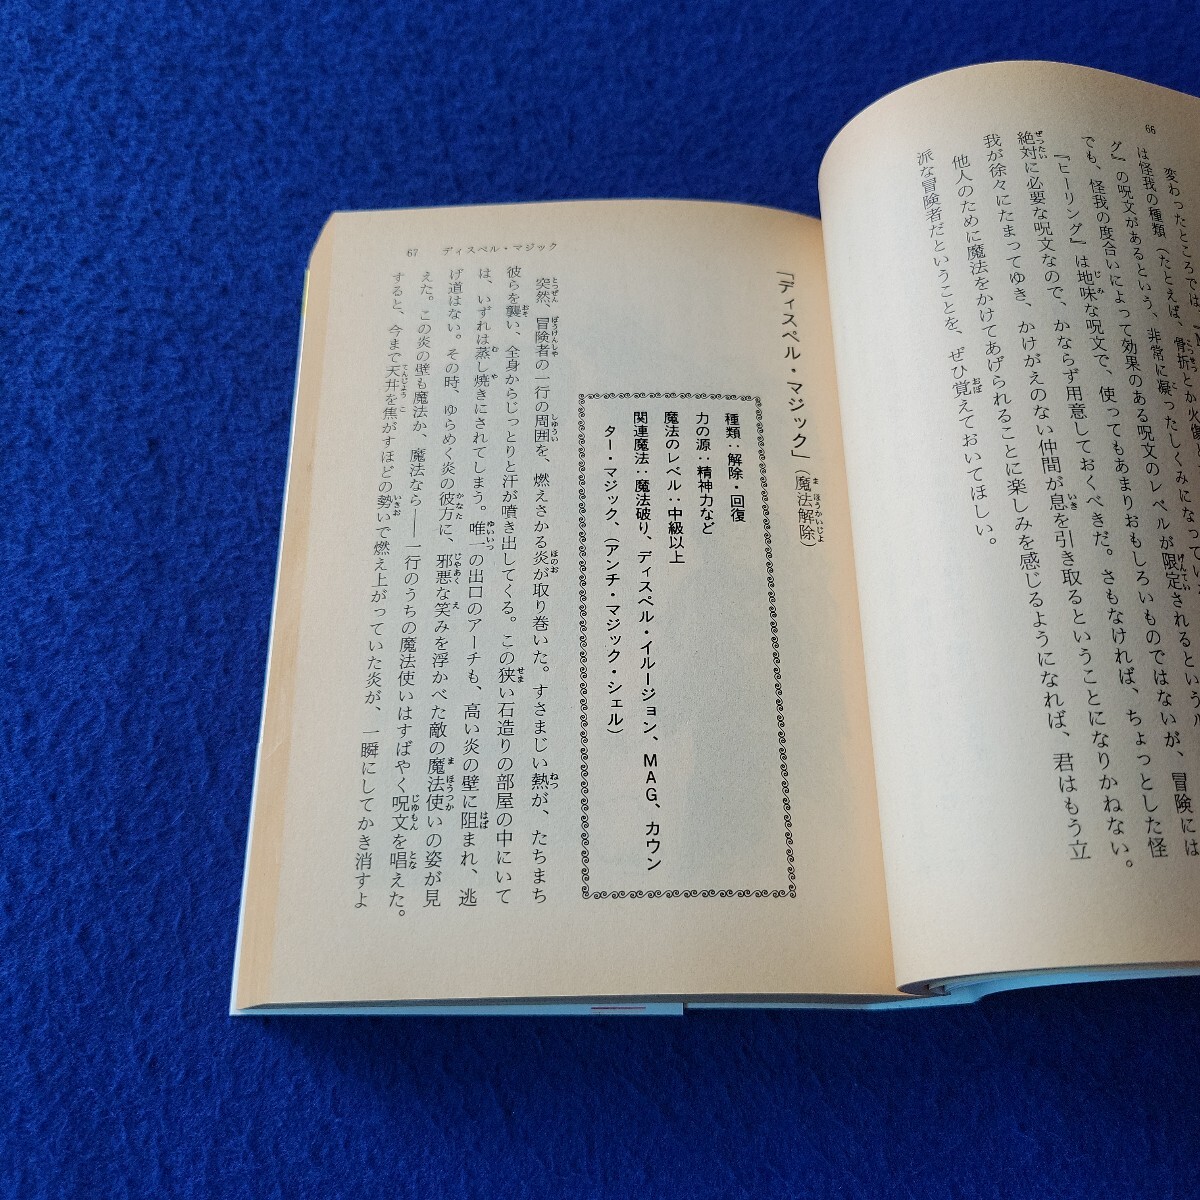 66
変わったところでは、
は怪我の種類(たとえば、骨折とか火傷と
グ』の呪文があるという、非常に凝ったしくみになってい
でも、怪我の度合いによって効果のある呪文のレベルが限定されるというル
『ヒーリング』は地味な呪文で、使ってもあまりおもしろいものではないが、冒険には
絶対に必要な呪文なので、かならず用意しておくべきだ。さもなければ、ちょっとした怪
我が徐々にたまってゆき、かけがえのない仲間が息を引き取るということになりかねない。
他人のために魔法をかけてあげられることに楽しみを感じるようになれば、君はもう立
派な冒険者だということを、ぜひ覚えておいてほしい。
67 ディスペル・マジック
「ディスペル・マジック」(魔法解除)
種類:解除・回復
力の源:精神力など
魔法のレベル:中級以上
関連魔法:魔法破り、ディスペル・イルージョン、MAG、カウン
ター・マジック、(アンチ・マジック・シェル)
突然、冒険者の一行の周囲を、燃えさかる炎が取り巻いた。すさまじい熱が、たちまち
彼らを襲い、全身からじっとりと汗が噴き出してくる。この狭い石造りの部屋の中にいて
は、いずれは蒸し焼きにされてしまう。唯一の出口のアーチも、高い炎の壁に阻まれ、逃
げ道はない。その時、ゆらめく炎の彼方に、邪悪な笑みを浮かべた敵の魔法使いの姿が見
えた。この炎の壁も魔法か、魔法なら――一行のうちの魔法使いはすばやく呪文を唱えた。
すると、今まで天井を焦がすほどの勢いで燃え上がっていた炎が、一瞬にしてかき消すよ